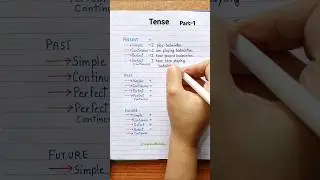 Tense Part-1
PRESENT
Simple = I play badminton.
Continuous = I am playing badminton.
Perfect = I have played badminton.
Perfect = I have been playing
Continuous badminton.
PAST
Simple =
Continuous =
Perfect =
Perfect =
Continuous
FUTURE
Simple =
Continuous =
Perfect =
Perfect =
Continuous
PAST
Simple
Continu
Perfec
Perfec
Continuo
FUTURE
Simple